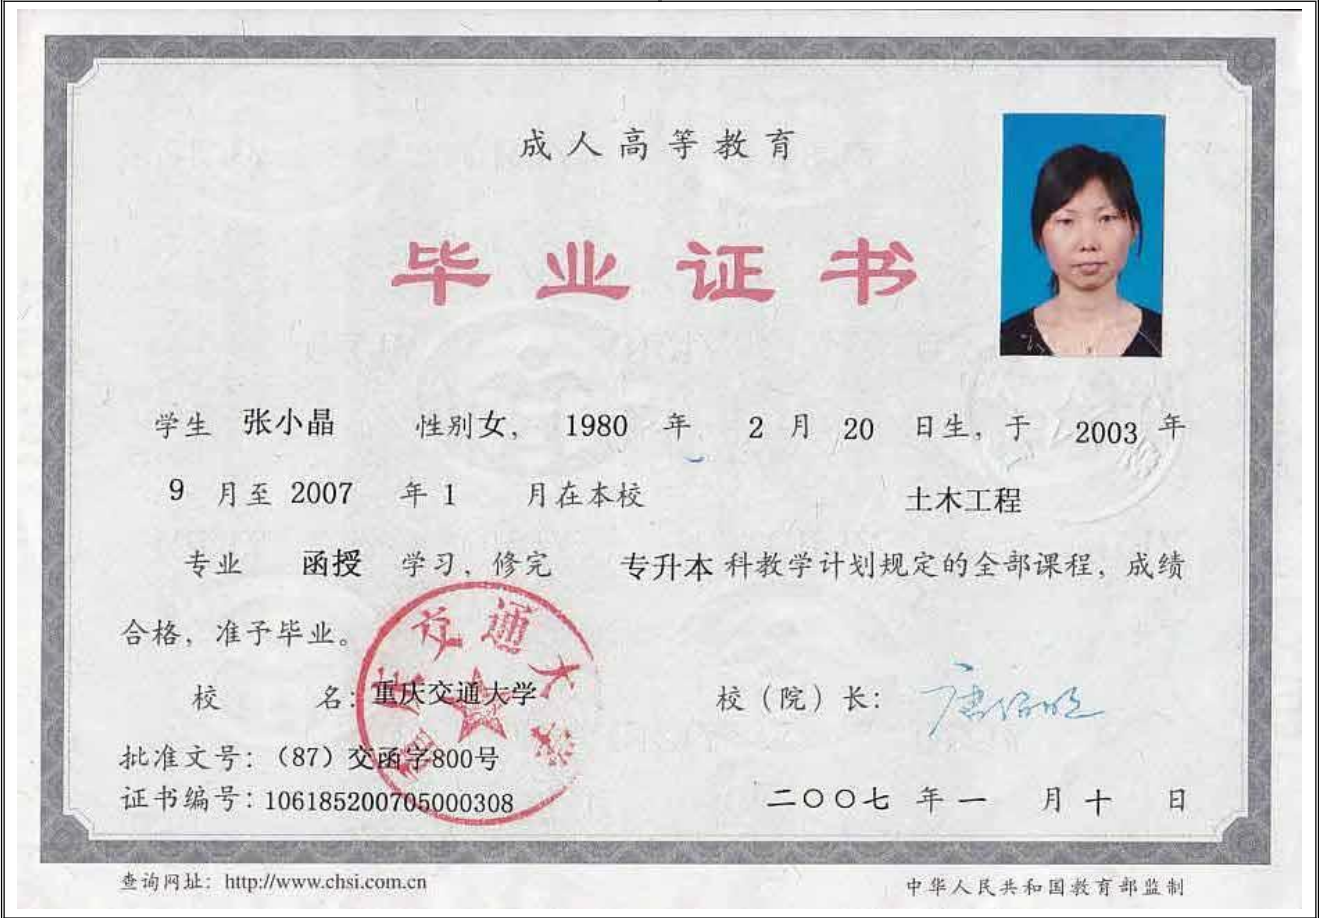 成人高等教育
毕业证书
学生 张小晶 性别女, 1980 年 2 月 20 日生, 于 2003 年
9 月至 2007 年 1 月在本校 土木工程
专业 函授 学习, 修完 专升本 科教学计划规定的全部课程, 成绩
合格, 准予毕业。
校 名: 重庆交通大学 校（院）长: 唐伯明
批准文号: (87) 交函字800号
证书编号: 106185200705000308 二〇〇七 年 一 月 十 日
查询网址: http://www.chsi.com.cn 中华人民共和国教育部监制
重庆交通大学